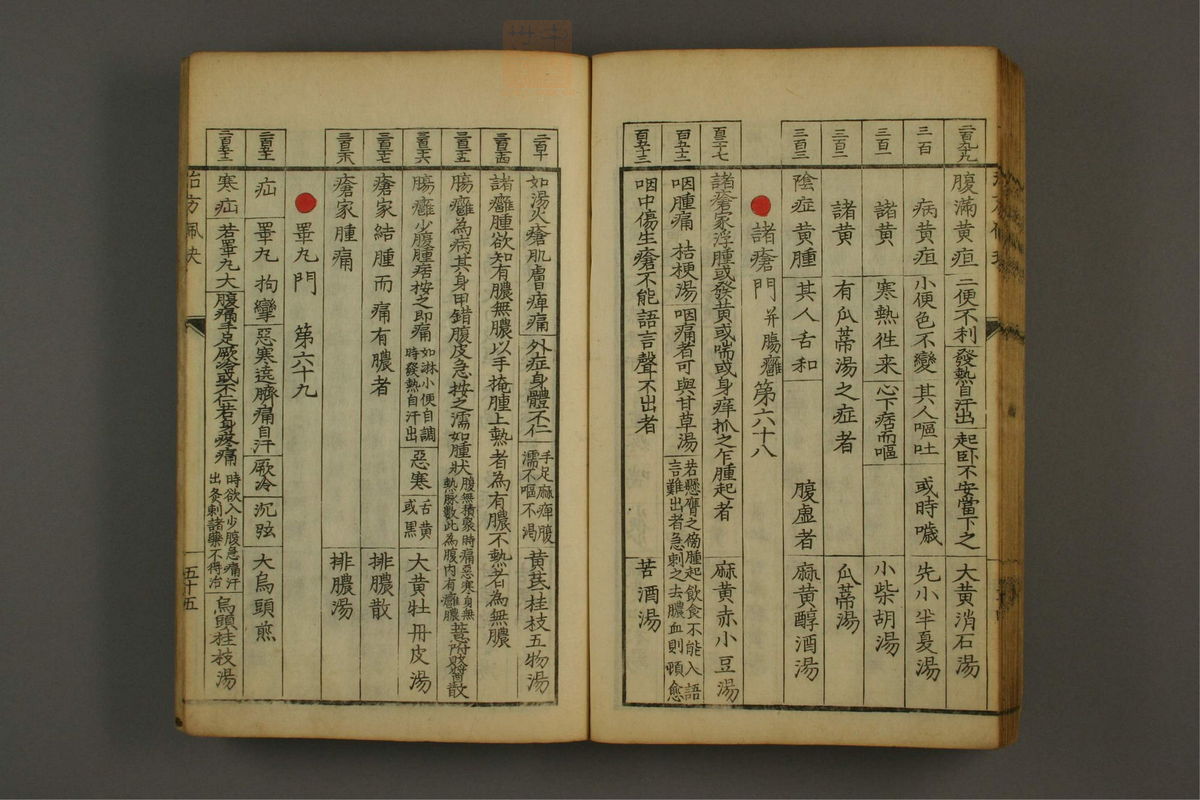 二百九十九 腹滿黃疸 二便不利 發熱自汗出 起卧不安當下之 大黃消石湯
三百 病黃疸 小便色不變 其人嘔吐 或時噦 先小半夏湯
三百一 諸黃 寒熱徃来 心下痞而嘔 小柴胡湯
三百二 諸黃 有瓜蒂湯之症者 瓜蒂湯
三百三 陰症黃腫 其人舌和 腹虛者 麻黃醇酒湯
諸瘡門 并腸癰 第六十八
諸瘡家浮腫或發黃或喘或身痒抓之乍腫起者 麻黃赤小豆湯
咽腫痛 桔梗湯 咽痛者可與甘草湯 若懸癰之傍腫起飲食不能入語言難出者急刺之去膿血則頓愈
百五十三 咽中傷生瘡不能語言聲不出者 苦酒湯
如湯火瘡肌膚痺痛 外症身體不仁 手足麻痺腹濡不嘔不渴 黃芪桂枝五物湯
諸癰腫欲知有膿無膿以手掩腫上熱者為有膿不熱者為無膿
腸癰為病其身甲錯腹皮急按之濡如腫狀 腹無積聚時痛惡寒身無熱脉數此為腹内有癰膿 薏附賤醬散
腸癰少腹腫痞按之即痛 如淋小便自調時發熱自汗出 惡寒 舌黃或黑 大黃牡丹皮湯
瘡家結腫而痛有膿者 排膿散
瘡家腫痛 排膿湯
睪丸門 第六十九
疝 睪丸拘攣 惡寒遶臍痛自汗 厥冷 沉弦 大烏頭煎
寒疝 若睪丸大 腹痛手足厥冷或不仁若身疼痛 時欲入少腹急痛汗出灸刺諸藥不得治 烏頭桂枝湯
五十五